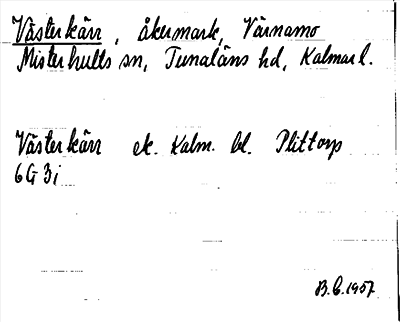 Västerkärr, åkermark, Värnamo
Misterhults sn, Tunaläns hd, Kalmar l.
Västerkärr ek. Kalm. bl. Plittorp
6G 3i
B.C. 1957